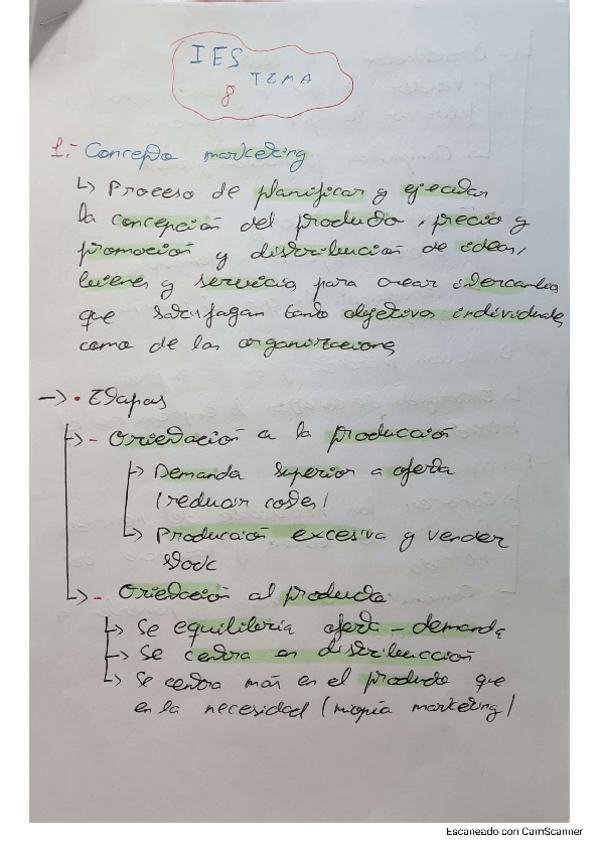 IES
TEMA
8
1.- Concepto marketing
↳ Proceso de planificar y ejecutar
la concepción del producto, precio y
promoción y distribución de ideas,
bienes y servicios para crear intercambios
que satisfagan tanto objetivos individuales
como de las organizaciones
→ • Etapas
↳ - Orientación a la producción
↳ Demanda superior a oferta
(reducir costes)
↳ Producción excesiva y vender
stock
↳ - Orientación al producto
↳ Se equilibria oferta - demanda
↳ Se centra en distribucción
↳ Se centra más en el producto que
en la necesidad (miopía marketing)
Escaneado con CamScanner